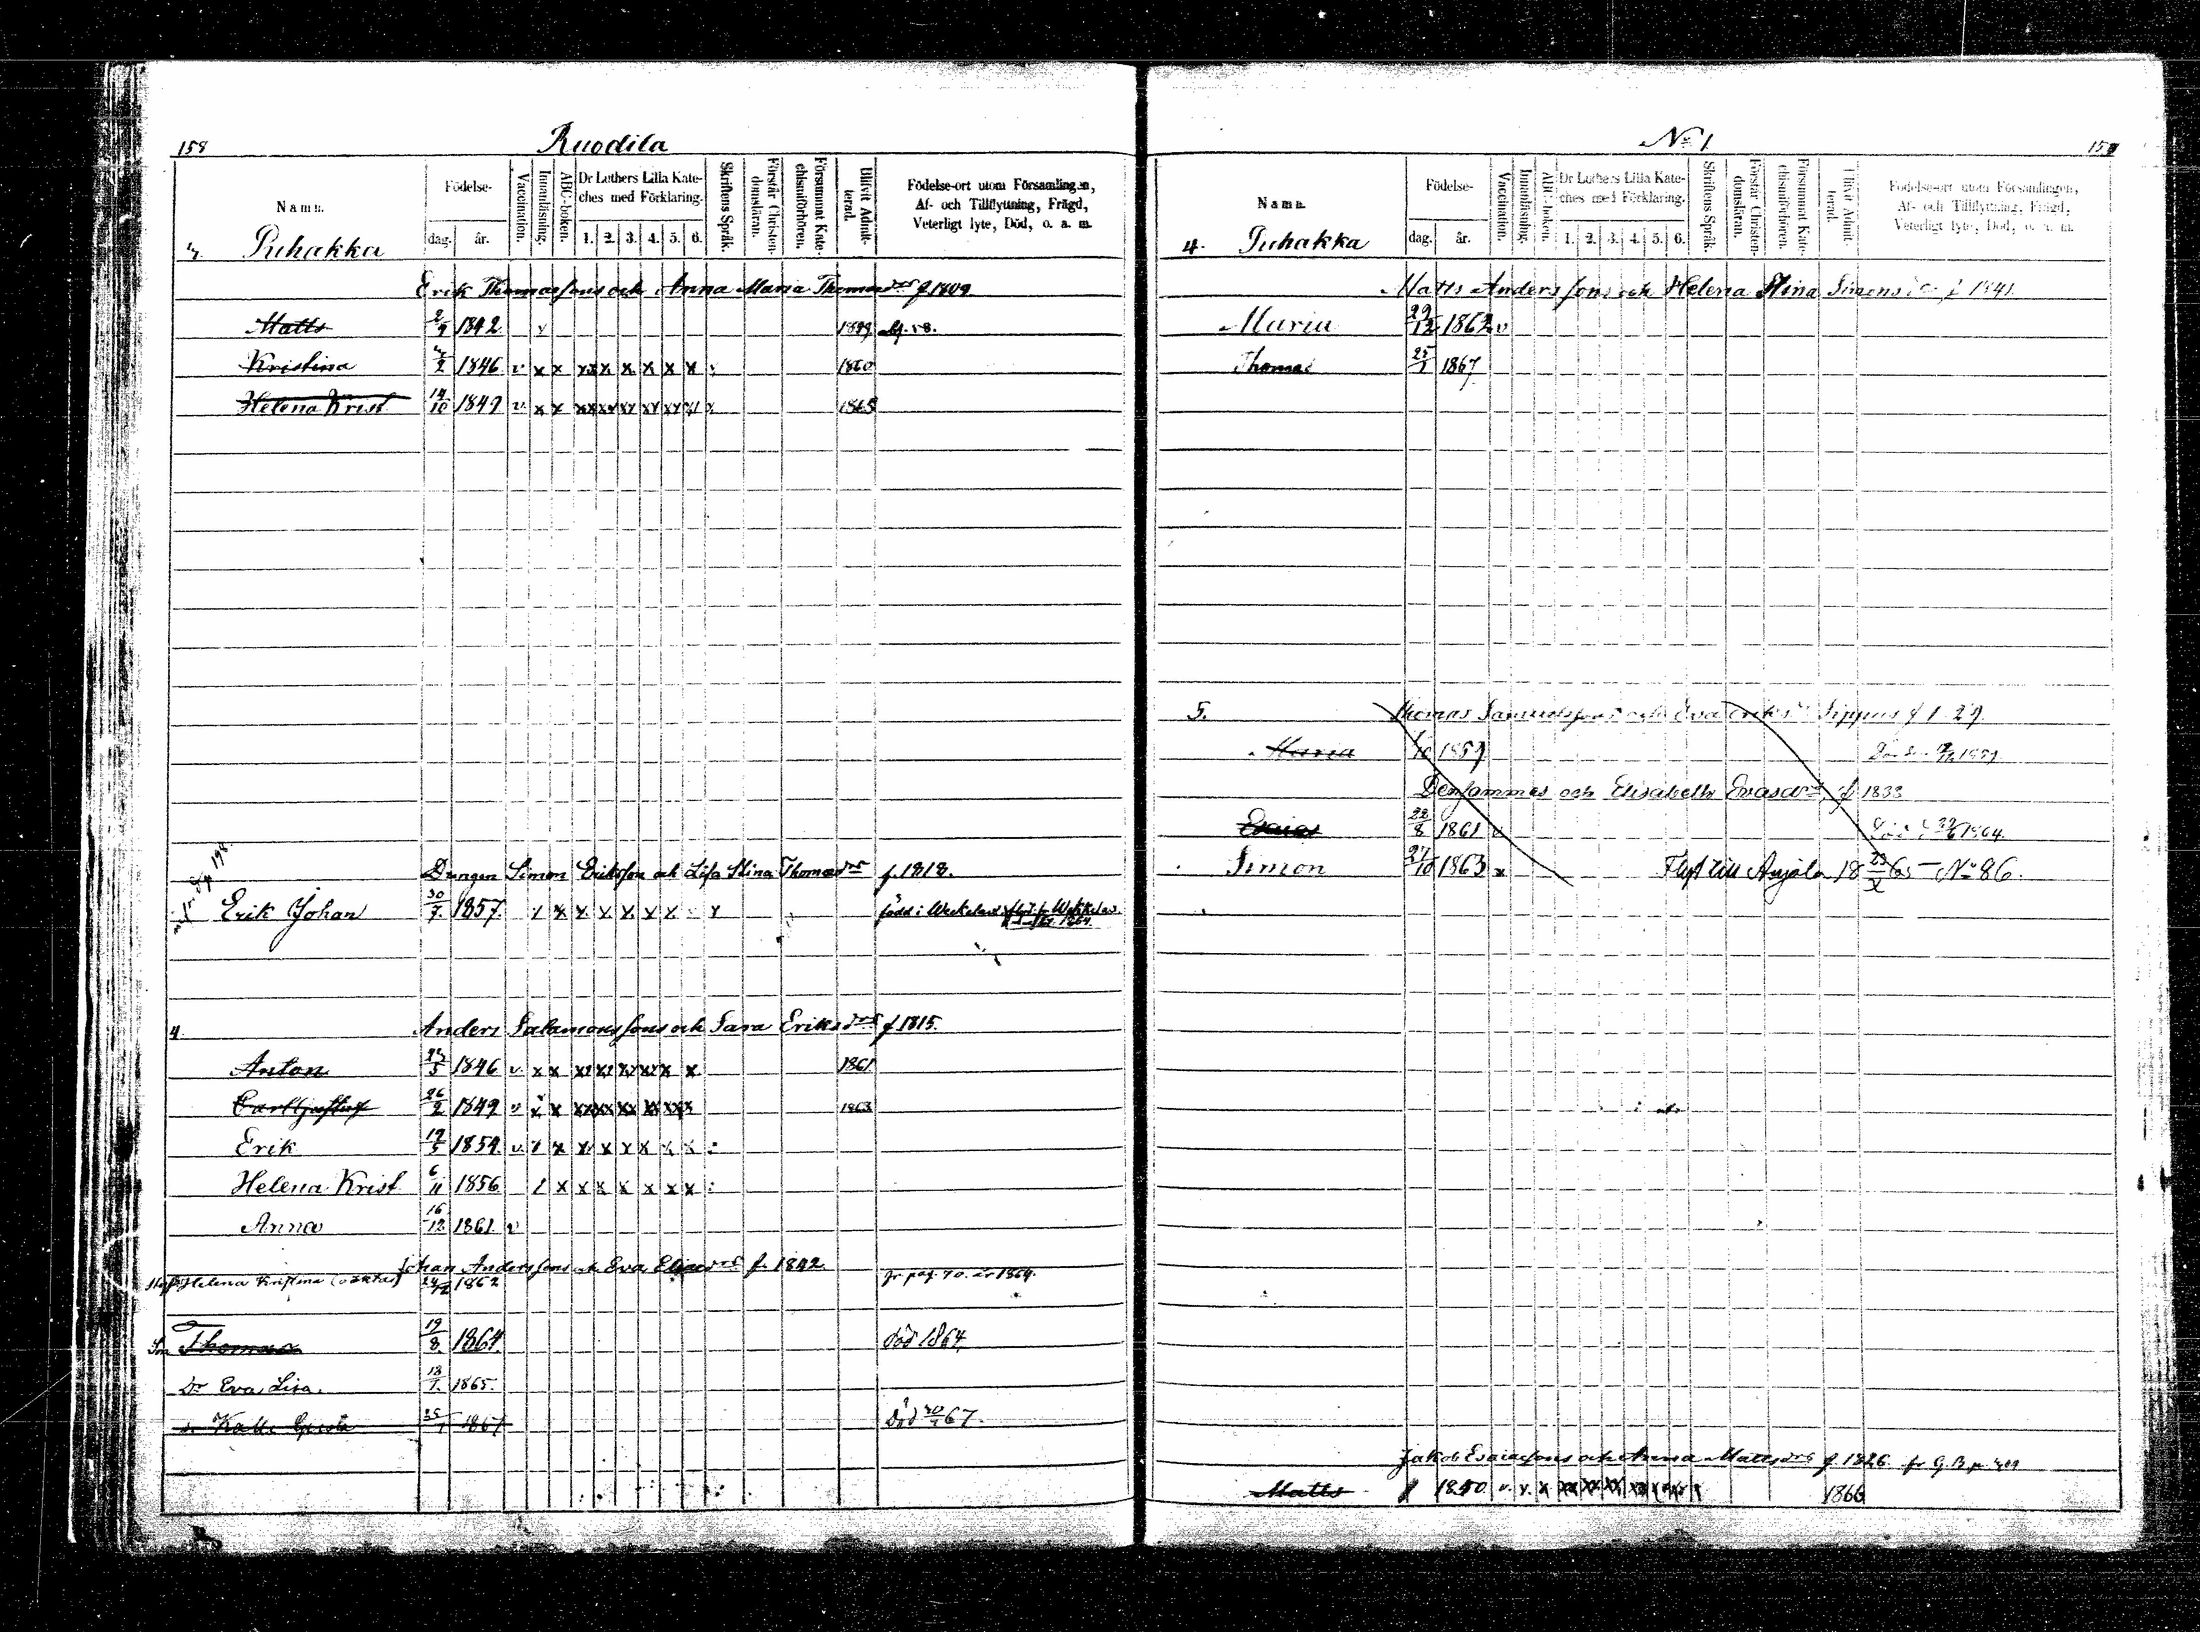 158
Ruodila
Namn.
Födelse-
dag.
år.
Vaccination.
Innanläsning.
ABC-boken.
Dr Luthers Lilla Kate-
ches med Förklaring.
1. 2. 3. 4. 5. 6.
Skriftens Språk.
Förstår Christen-
domsläran.
Försummat Kate-
chismiförhören.
Blifvit Admit-
terad.
Födelse-ort utom Församlingen,
Af- och Tillflyttning, Frägd,
Veterligt lyte, Död, o. a. m.
Puhakka
Erik Thomassons och Anna Maria Thomasdrs f 1809
Matts 2/9 1842 v
Kristina 1846 v x x x x x x x x 1860
Helena Krist 14/10 1849 v x x xx xx xx xx xx 1865
Drängen Simon Eriksson och Lisa Stina Thomasdrs f. 1818.
Erik Johan 30/7 1857 född i Weckelaks
4. Anders Salamonssons och Sara Eriksdrs f 1815.
Anton 23/5 1846 v x x 1861
Carl Gustaf 26/2 1849 v x x 1863
Erik 19/5 1854 v
Helena Krist 6/11 1856
Anna 16/12 1861 v
Johan Anderssons och Eva Eliaedrs f. 1842
Helena Kristina 1862 fr pag. 70. år 1864.
Son Thomas 19/8 1864 död 1864
Dr Eva Lisa. 18/7 1865.
1867 Död 67.
No 1
Namn.
Födelse-
dag.
år.
Vaccination.
Innanläsning.
ABC-boken.
Dr Luthers Lilla Kate-
ches med Förklaring.
1. 2. 3. 4. 5. 6.
Skriftens Språk.
Förstår Christen-
domsläran.
Försummat Kate-
chismiförhören.
Blifvit Admit-
terad.
Födelse-ort utom Församlingen,
Af- och Tillflyttning, Frägd,
Veterligt lyte, Död, o. a. m.
4. Puhakka
Matts Anderssons och Helena Stina Simonsdr f 1841.
Maria 29/12 1862 v
Thomas 25/1 1867
5. Thomas Samuelssons och Eva Eriksdr Sippus f
Maria 1859 1859
Densammes och Elisabeth Evasdrs f 1833
Esaias 22/8 1861 v Död 1864.
Simon 27/10 1863 x Flyt till Anjala 18 23/X 65 - No 86.
Jakob Esaiassons och Anna Mattsdrs f 1826
Matts 1850 v. v. x 1866